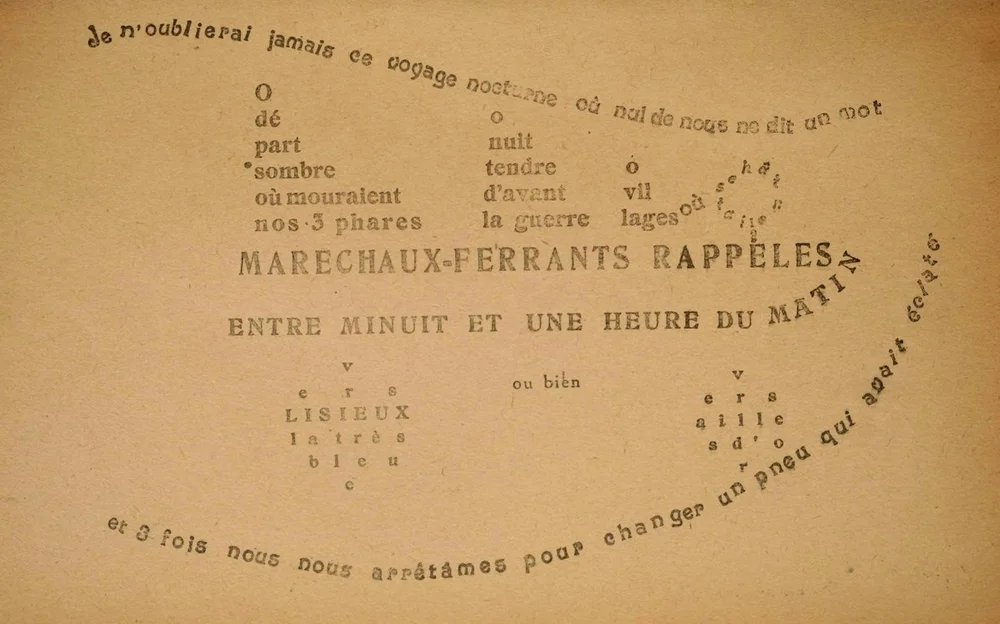 Je n'oublierai jamais ce voyage nocturne où nul de nous ne dit un mot
O
dé
part
sombre
où mouraient
nos 3 phares
o
nuit
tendre
d'avant
la guerre
ô
vil
lages où se hâtaient
MARECHAUX-FERRANTS RAPPÉLES
ENTRE MINUIT ET UNE HEURE DU MATIN
v
e r s
LISIEUX
la très
b l e u
e
ou bien
v
e r s
a i l l e
s d' o
r
et 3 fois nous nous arrêtâmes pour changer un pneu qui avait éclaté